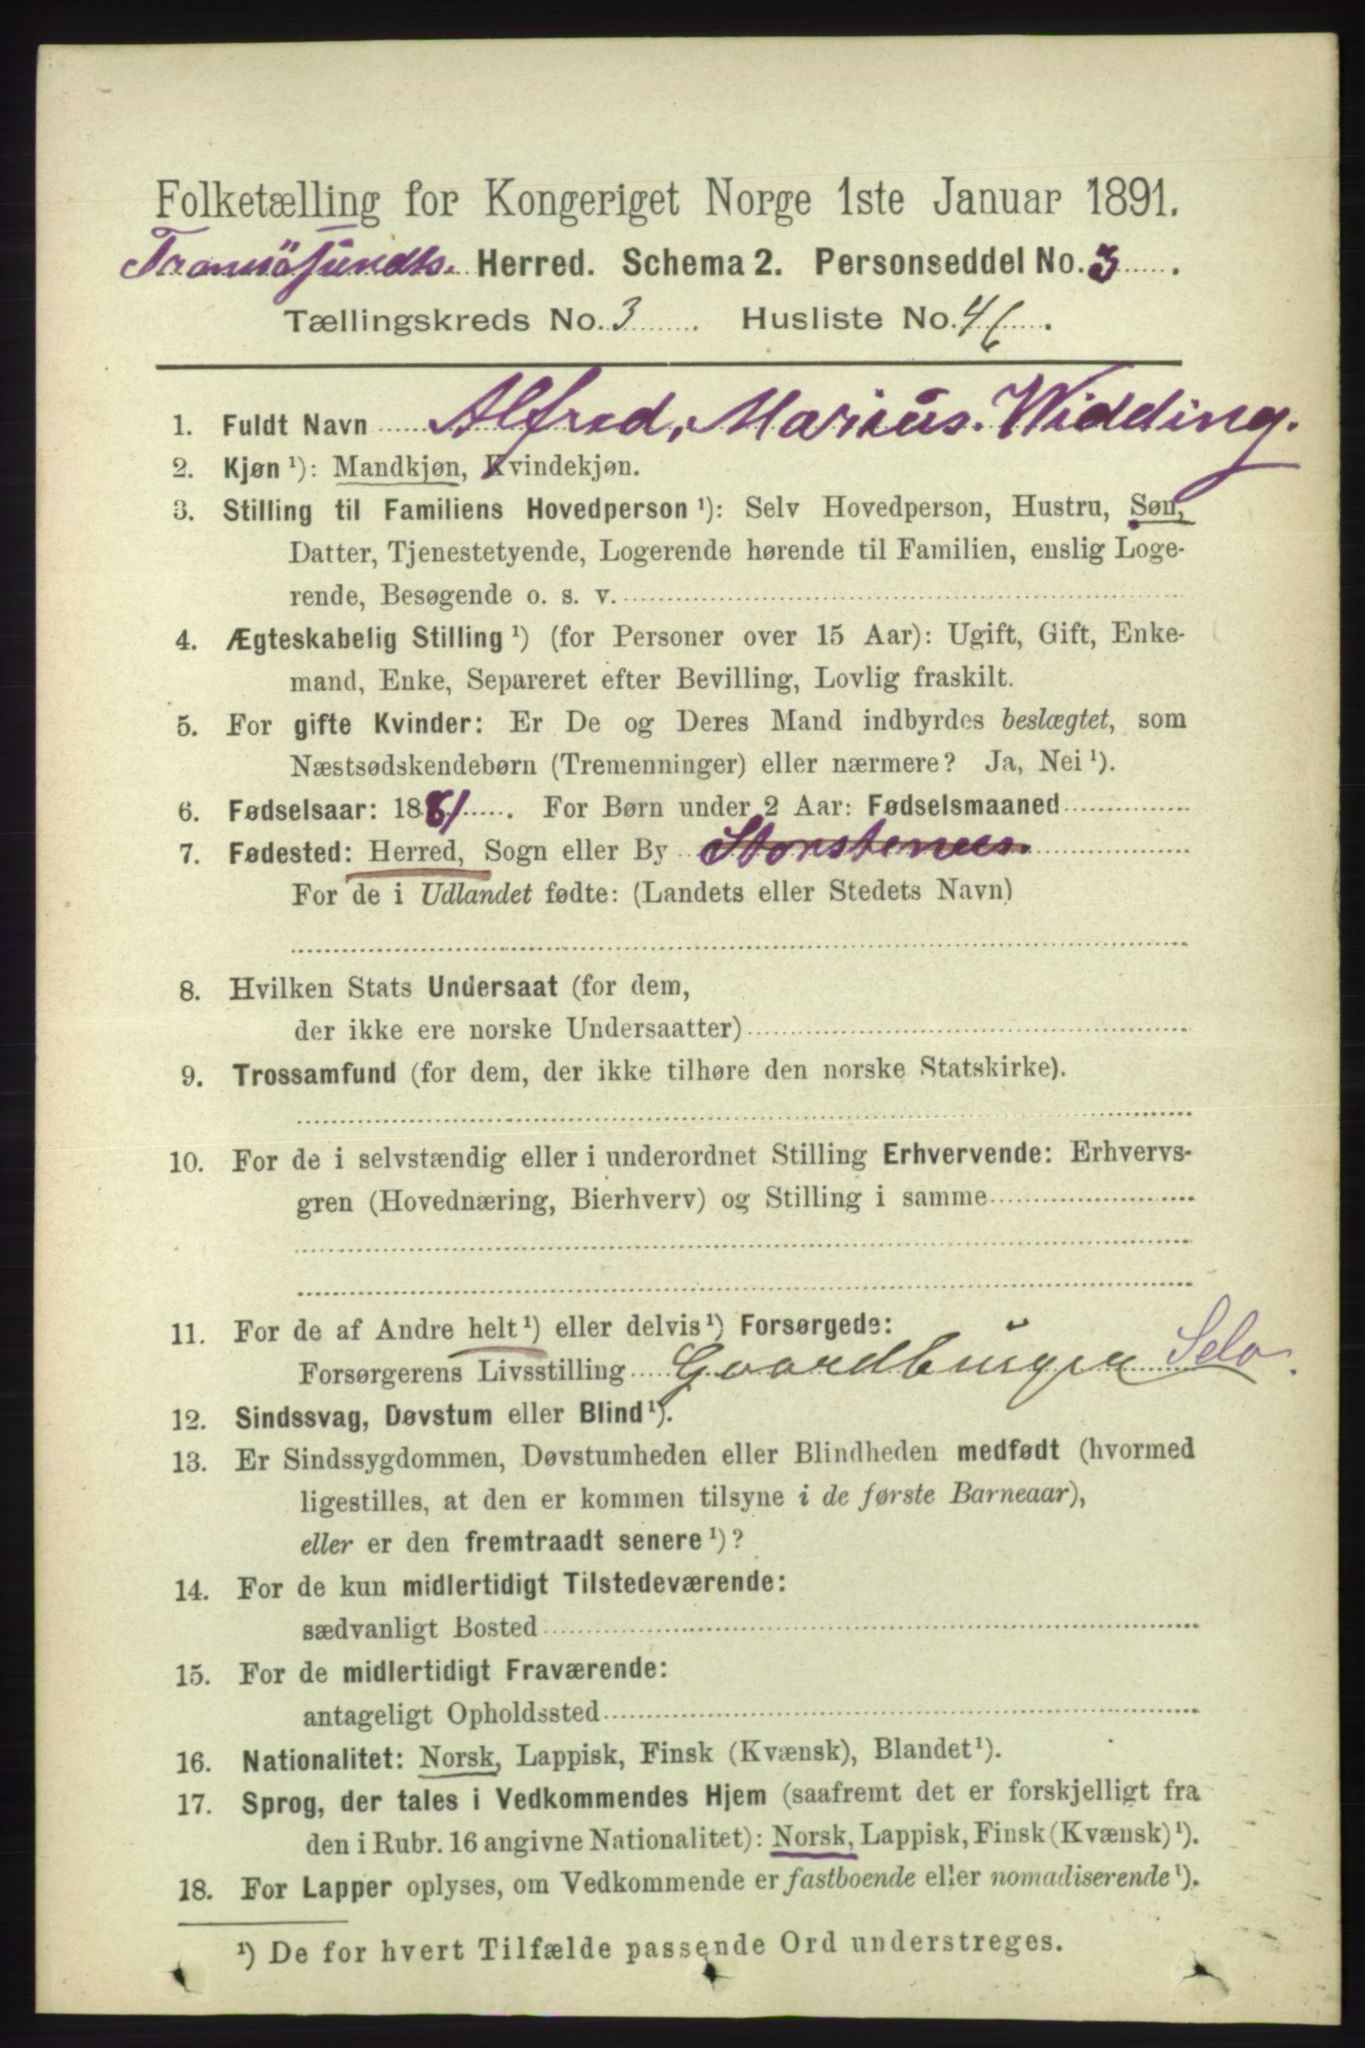 Folketælling for Kongeriget Norge 1ste Januar 1891.
Tromsøsundts. Herred. Schema 2. Personseddel No. 3
Tællingskreds No. 3 Husliste No. 46
1. Fuldt Navn Alfred, Marius. Widding.
2. Kjøn ¹): Mandkjøn, Kvindekjøn.
3. Stilling til Familiens Hovedperson ¹): Selv Hovedperson, Hustru, Søn,
Datter, Tjenestetyende, Logerende hørende til Familien, enslig Loge-
rende, Besøgende o. s. v.
4. Ægteskabelig Stilling ¹) (for Personer over 15 Aar): Ugift, Gift, Enke-
mand, Enke, Separeret efter Bevilling, Lovlig fraskilt.
5. For gifte Kvinder: Er De og Deres Mand indbyrdes beslægtet, som
Næstsødskendebørn (Tremenninger) eller nærmere? Ja, Nei ¹).
6. Fødselsaar: 1881. For Børn under 2 Aar: Fødselsmaaned
7. Fødested: Herred, Sogn eller By Storstenus
For de i Udlandet fødte: (Landets eller Stedets Navn)
8. Hvilken Stats Undersaat (for dem,
der ikke ere norske Undersaatter)
9. Trossamfund (for dem, der ikke tilhøre den norske Statskirke).
10. For de i selvstændig eller i underordnet Stilling Erhvervende: Erhvervs-
gren (Hovednæring, Bierhverv) og Stilling i samme
11. For de af Andre helt ¹) eller delvis ¹) Forsørgede:
Forsørgerens Livsstilling Gaardbruger Selv.
12. Sindssvag, Døvstum eller Blind ¹).
13. Er Sindssygdommen, Døvstumheden eller Blindheden medfødt (hvormed
ligestilles, at den er kommen tilsyne i de første Barneaar),
eller er den fremtraadt senere ¹)?
14. For de kun midlertidigt Tilstedeværende:
sædvanligt Bosted
15. For de midlertidigt Fraværende:
antageligt Opholdssted
16. Nationalitet: Norsk, Lappisk, Finsk (Kvænsk), Blandet ¹).
17. Sprog, der tales i Vedkommendes Hjem (saafremt det er forskjelligt fra
den i Rubr. 16 angivne Nationalitet): Norsk, Lappisk, Finsk (Kvænsk) ¹).
18. For Lapper oplyses, om Vedkommende er fastboende eller nomadiserende ¹).
¹) De for hvert Tilfælde passende Ord understreges.